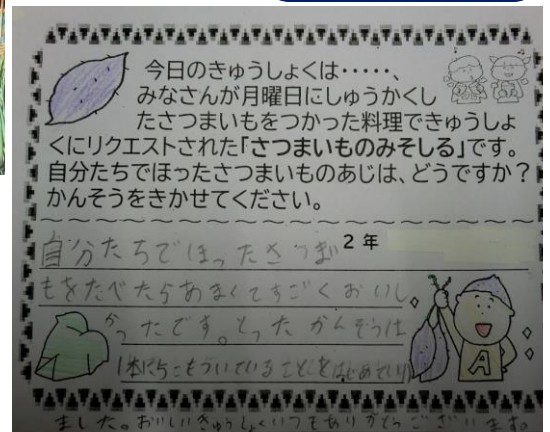 今日のきゅうしょくは‥‥‥、
みなさんが月曜日にしゅうかくし
たさつまいもをつかった料理できゅうしょ
くにリクエストされた「さつまいものみそしる」です。
自分たちでほったさつまいものあじは、どうですか？
かんそうをきかせてください。
2年
自分たちでほったさつまい
もをたべたらあまくてすごくおいし
かったです。とったかんそうは
1本に
ついていることをはじめてしり
ました。おいしいきゅうしょくいつもありがとうございます。
A